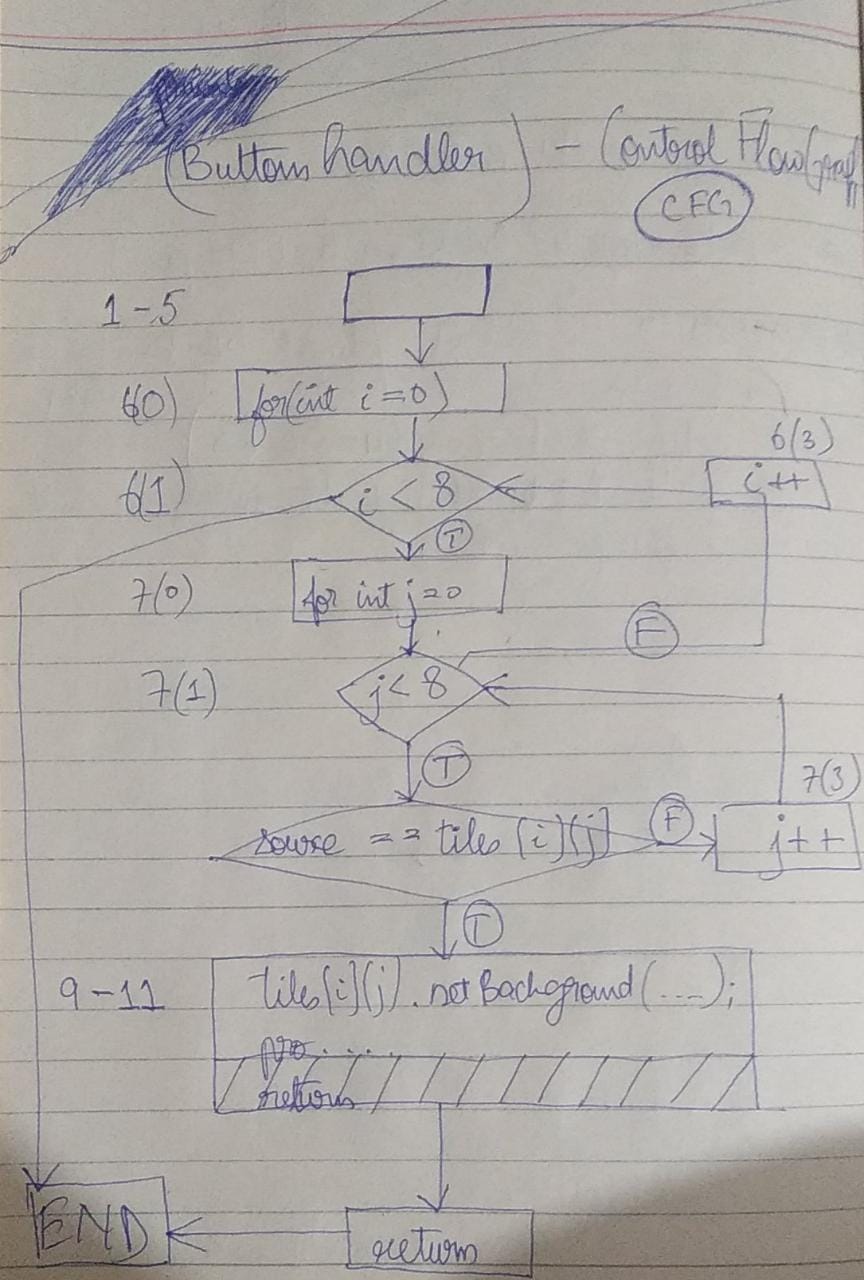 (Button handler) - Control Flow Graph
CFG
1-5
6(0) for(int i=0)
6(3)
6(1) i < 8 i++
T
7(0) for int j=0
F
7(1) j< 8
T
7(3)
sourse == tiles [i][j] F j++
T
9-11 tiles[i][j].setBackground(....);
pro....
return
END return